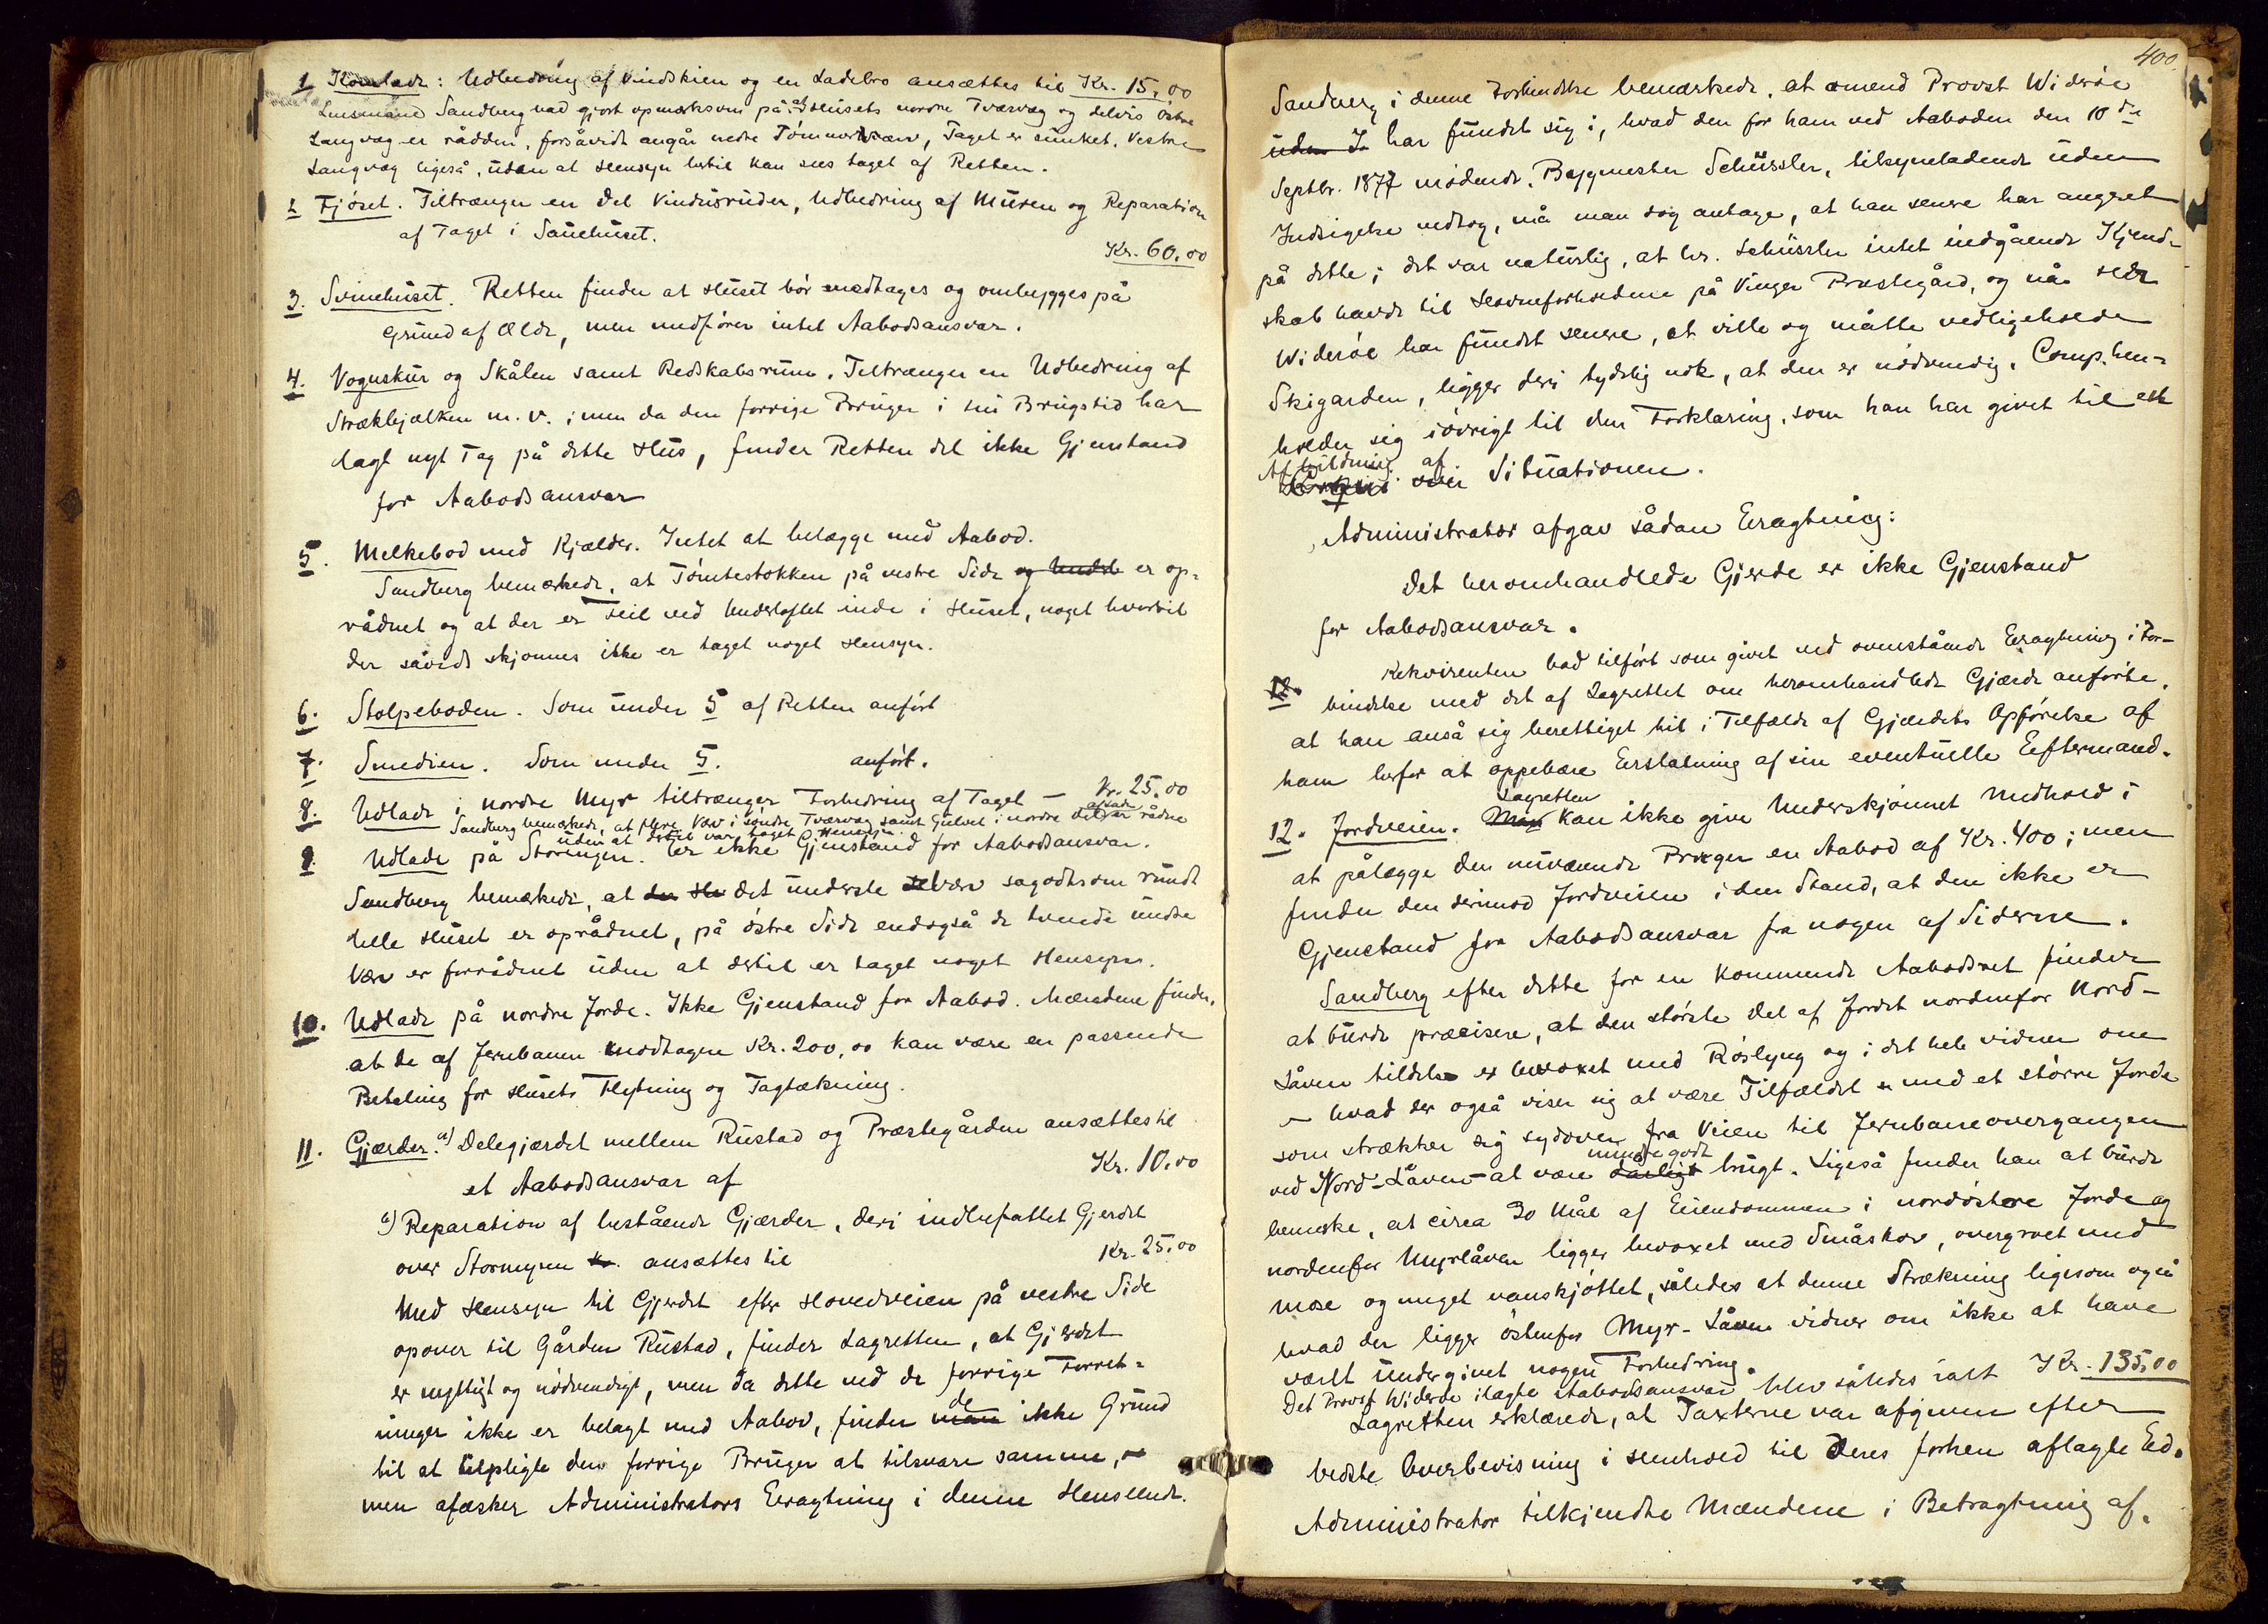 1 Kornlade: Udbedring af Vindskien og en Ladebro ansættes til Kr. 15,00
Lensmand Sandberg bad gjort opmerksom på at Husets nordre Tværvæg og delvis östre
Langvæg er rådden, forsåvidt angår nedre Tömmerhværv, Taget er sunket. Vestre
Langvæg ligeså, uden at Hensyn hertil kan sees taget af Retten.
2 Fjöset. Tiltrænger en Del Vindusruder, Udbedring af Muren og Reparation
af Taget i Sauehuset.
Kr. 60,00
3. Svinehuset. Retten finder at Huset bör nedtages og ombygges på
Grund af Ælde, men medförer intet Aabodsansvar.
4. Vognskur og Skålen samt Redskabsrum. Tiltrænger en Udbedring af
Strækbjælken m.v.; men da den forrige Bruger i sin Brugstid har
lagt nyt Tag på dette Hus, finder Retten det ikke Gjenstand
for Aabodsansvar
5. Melkebod med Kjælder. Intet at belægge med Aabod.
Sandberg bemerkede, at Tömtestokken på vestre Side og Undst er op-
rådnet og at der er Feil ved Underloftet inde i Huset, noget hvortil
der såvidt skjönnes ikke er taget noget Hensyn.
6. Stolpeboden. Som under 5 af Retten anfört
7. Smedien. Som under 5. anfört.
8. Udlade i nordre Myr tiltrænger Forbedring af Taget — Kr. 25,00
Sandberg bemerkede, at flere Værv i söndre Tværvæg samt Gulvet i nordre Del af Laden er rådne
uden at dertil var taget Hensyn.
9. Udlade på Storengen. Er ikke Gjenstand for Aabodsansvar.
Sandberg bemerkede, at det underste Hværv sagodtsom rundt
hele Huset er oprådnet, på östre Side endogså de tvende undre
Værv er forrådnet uden at dertil er taget noget Hensyn.
10. Udlade på nordre Jorde. Ikke Gjenstand for Aabod. Mændene finder,
at de af Jernbanen modtagne Kr. 200,00 kan være en passende
Betaling for Husets Flytning og Tagtækning.
11. Gjærder. a) Delegjærdet mellem Rustad og Præstegården ansættes til
et Aabodsansvar af Kr. 10,00
a) Reparation af bestående Gjærder, deri indbefattet Gjerdet
over Stormyren ansættes til Kr. 25,00
Med Hensyn til Gjerdet efter Hovedveien på vestre Side
opover til Gården Rustad, finder Lagretten, at Gjerdet
er nyttigt og nödvendigt, men da dette ved de forrige Forret-
ninger ikke er belagt med Aabod, finder man de ikke Grund
til at tilpligte den forrige Bruger at tilsvare samme, —
men afæsker Administrators Eragtning i denne Henseende.
400
Sandberg i denne Forbindelse bemærkede, at omend Provst Wideröe
uden I har fundet sig i, hvad den for ham ved Aaboden den 10de
Septbr. 1877 mödende, Bygmester Schüssler, tilsyneladende uden
Indsigelse vedtog, må man dog antage, at han senere har angret
på dette; det var naturlig, at hr. Schüssler intet indgående Kjend-
skab havde til Havneforholdene på Vinger Prestegård, og når Hr
Wideröe har fundet senere, at ville og måtte vedligeholde
Skigarden, ligger deri tydelig nok, at den er nödvendig. Comp. hen-
holder sig iövrigt til den Forklaring, som han har givet til en
Afbildning af
over Situationen.
Administrator afgav sådan Eragtning:
Det heromhandlede Gjerde er ikke Gjenstand
for Aabodsansvar.
Rekvirenten bad tilfört som givet ved ovenstående Eragtning i For-
12. bindelse med det af Lagrettet om heromhandlede Gjærde anförte,
at han anså sig berettiget til i Tilfælde af Gjærdets Opförelse af
ham herfor at oppebære Erstatning af sin eventuelle Eeftermand.
Lagretten
12. Jordveien. Man kan ikke give Underskjönnet Medhold i
at pålægge den nuværende Bruger en Aabod af Kr. 400; men
finder den derimod Jordveien i den Stand, at den ikke er
Gjenstand for Aabodsansvar fra nogen af Siderne.
Sandberg efter dette for en kommende Aabodsret finder
at burde præcisere, at den störste Del af Jordet nordenfor Nord-
Låven tildels er bevoxet med Röslyng og i det hele vidner om
— hvad der også viser sig at være Tilfældet med et större Jorde
som strækker sig sydover fra Veien til Jernbaneovergangen
mindre godt
ved Nord-Låven — at være dårligt brugt. Ligeså finder han at burde
bemerke, at circa 30 Mål af Eiendommen i nordöstre Jorde og
nordenfor Myrlåven ligger bevoxet med Småskov, overgroet med
mose og meget vanskjöttet, således at denne Strækning ligesom også
hvad der ligger östenfor Myr-Låven vidner om ikke at have
været undergivet nogen Forbedring.
Det Provst Wideröe ilagte Aabodsansvar blev således ialt Kr. 135,00
Lagretten erklærede, at Taxterne var afgivne efter
bedste Overbevisning i Henhold til Deres forhen aflagte Ed.
Administrator tilkjendte Mændene i Betragtning af,